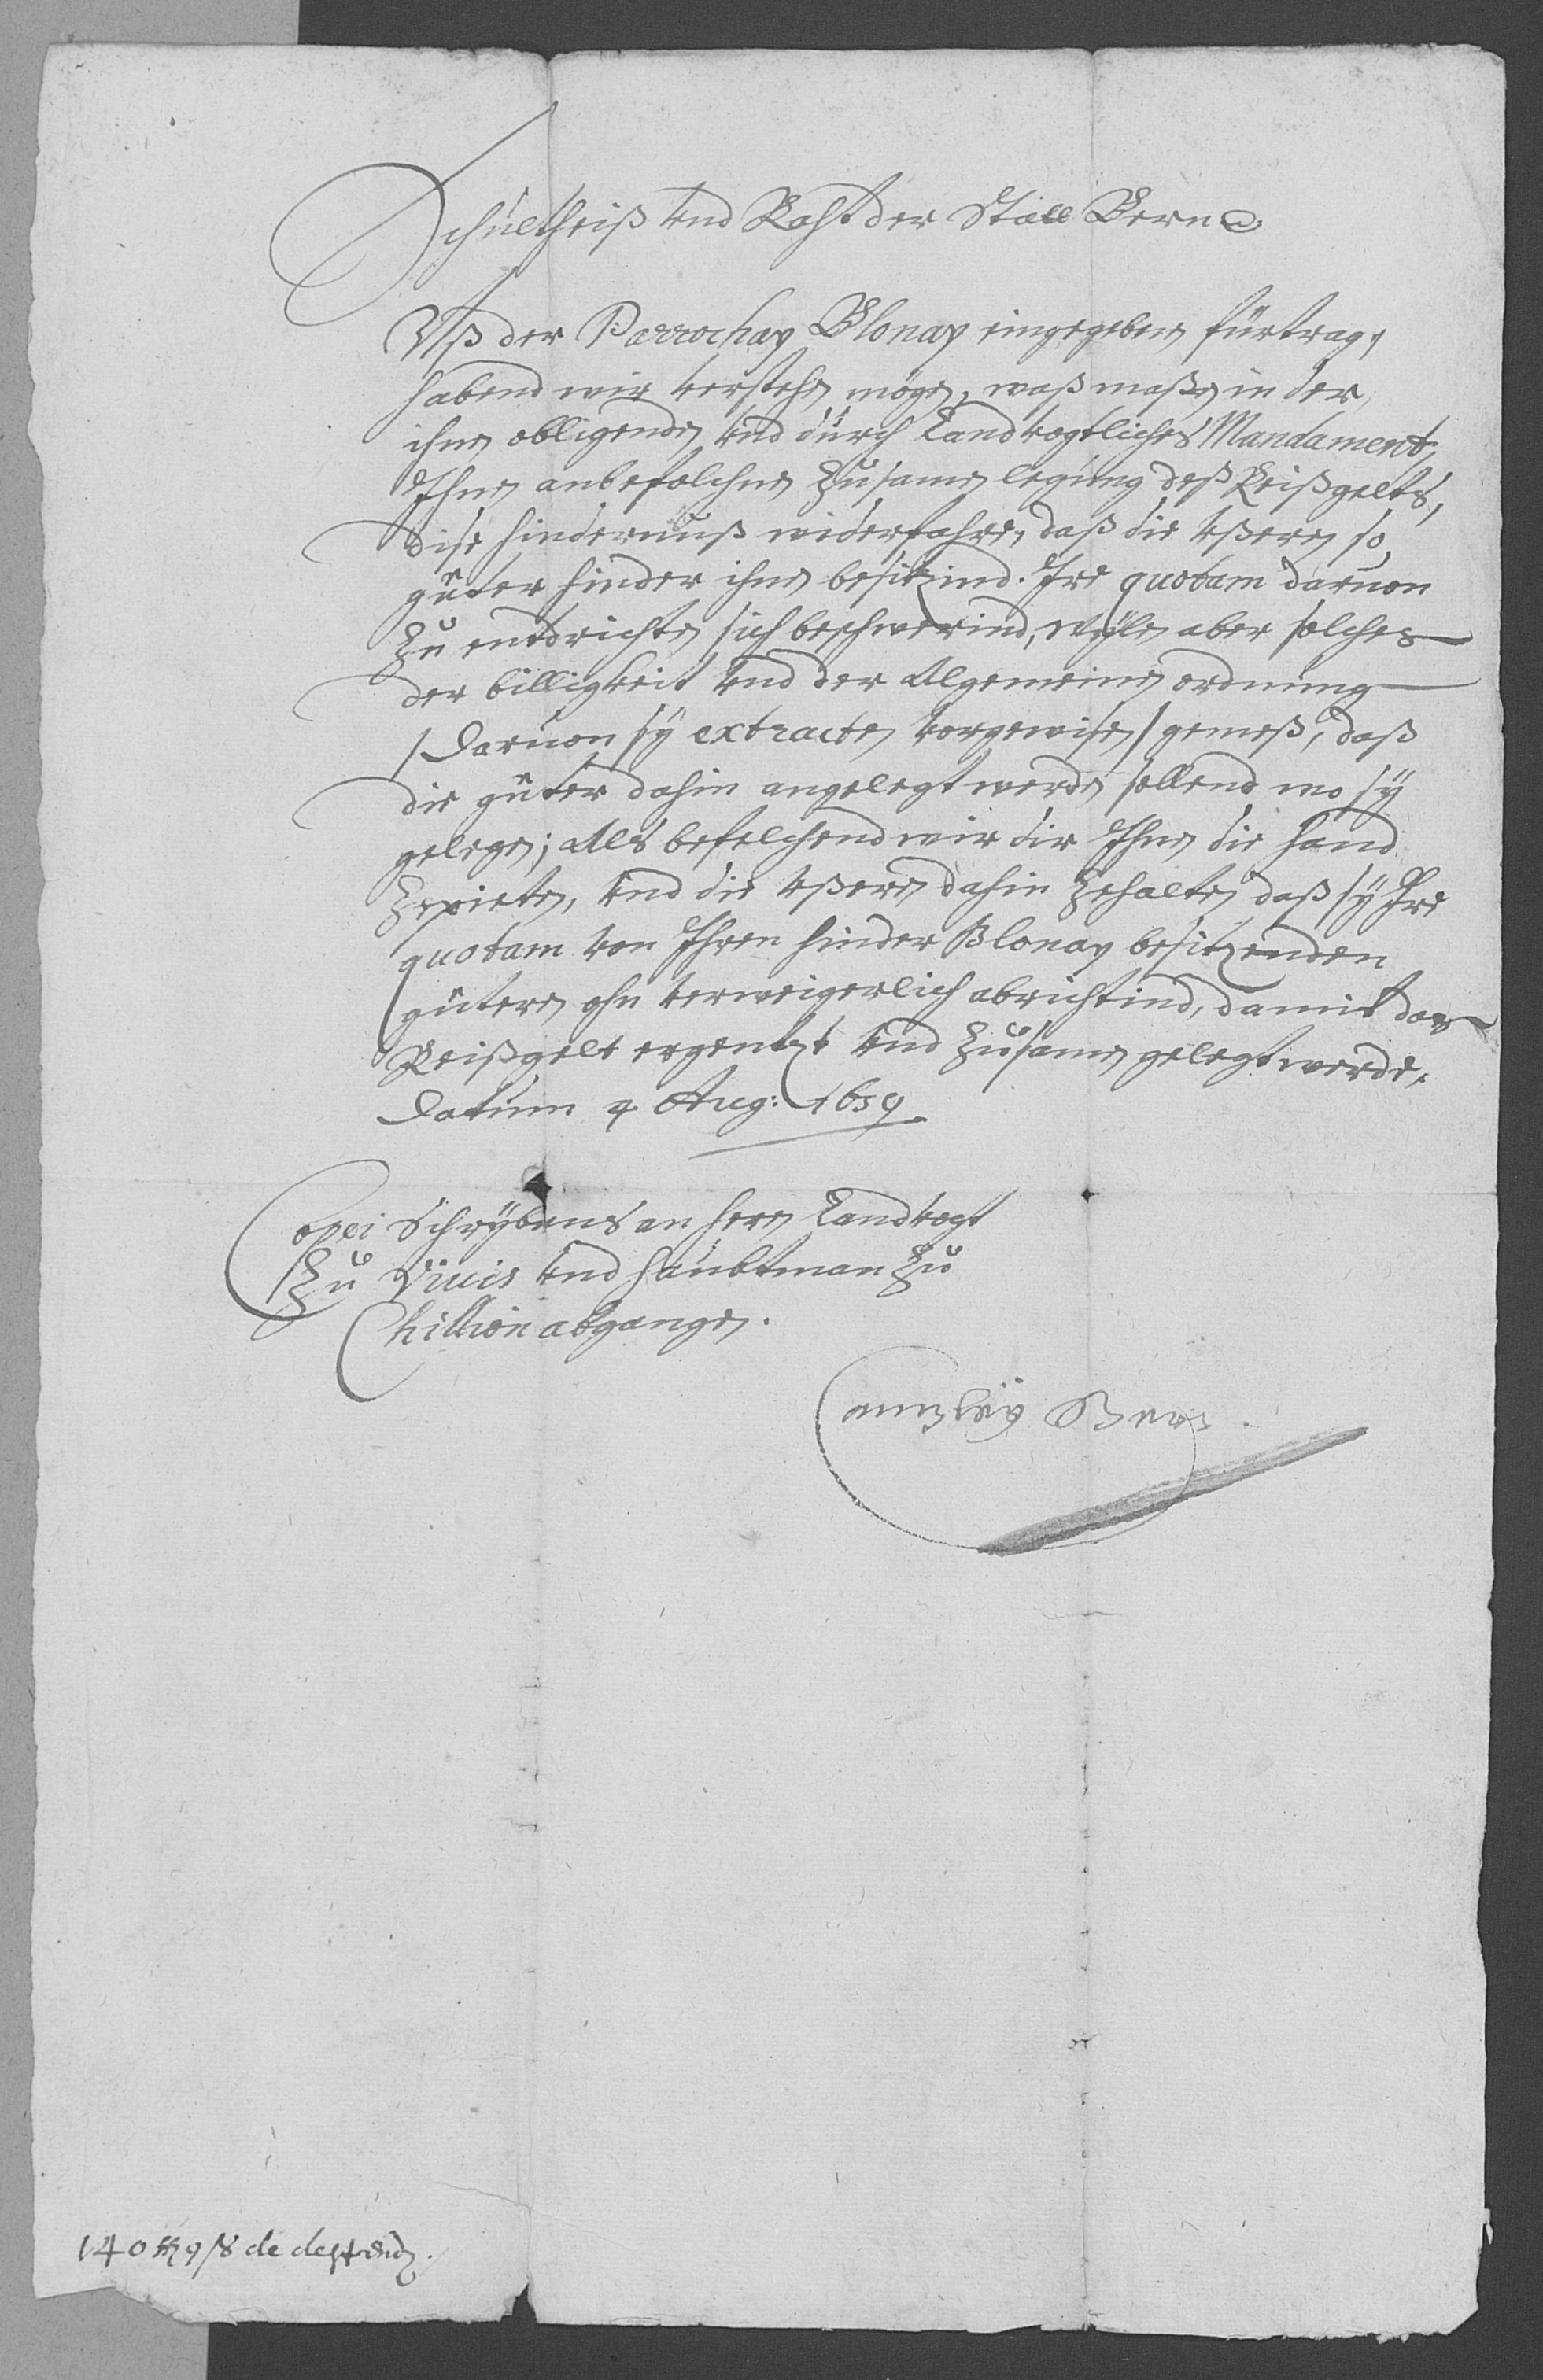 Schultheiß vnd Raht der Statt Bern
Vß der Parrochay Blonay eingegeben fürtrag,
habend wir verstehen mögen, waß maßen in der
ihnen obligenden vnd durch Landtvogtliches Mandament,
Ihnen anbefolchnen zusamen legung deß Reißgelts,
dise hindernuß widerfahre, daß die vßeren so,
güter hinder ihnen besitzind. Ire quotam daruon
zu entdrichten sich beschwerind, wylen aber solches
der billigkeit vnd der Algemeinen ordnung
/ daruon sy extracten vorgewisen / gemeß, daß
die güter dahin angelegt werden sollend wo sy
gelegen; Als befelchend wir dir Ihnen die hand
zepieten, vnd die vßeren dahin zehalten daß sy Ire
quotam von Ihren hinder Blonay besitzenden
güteren ohn verweigerlich abrichtind, damit das
Reißgelt ergentzt vnd zusamen gelegt werde.
Datum 4 Aug: 1659
Copei Schrybens an herrn Landtvogt
zu Vivis vnd haubtman zu
Chillion abgangen.
Cantzley Bern
140 9 8 de